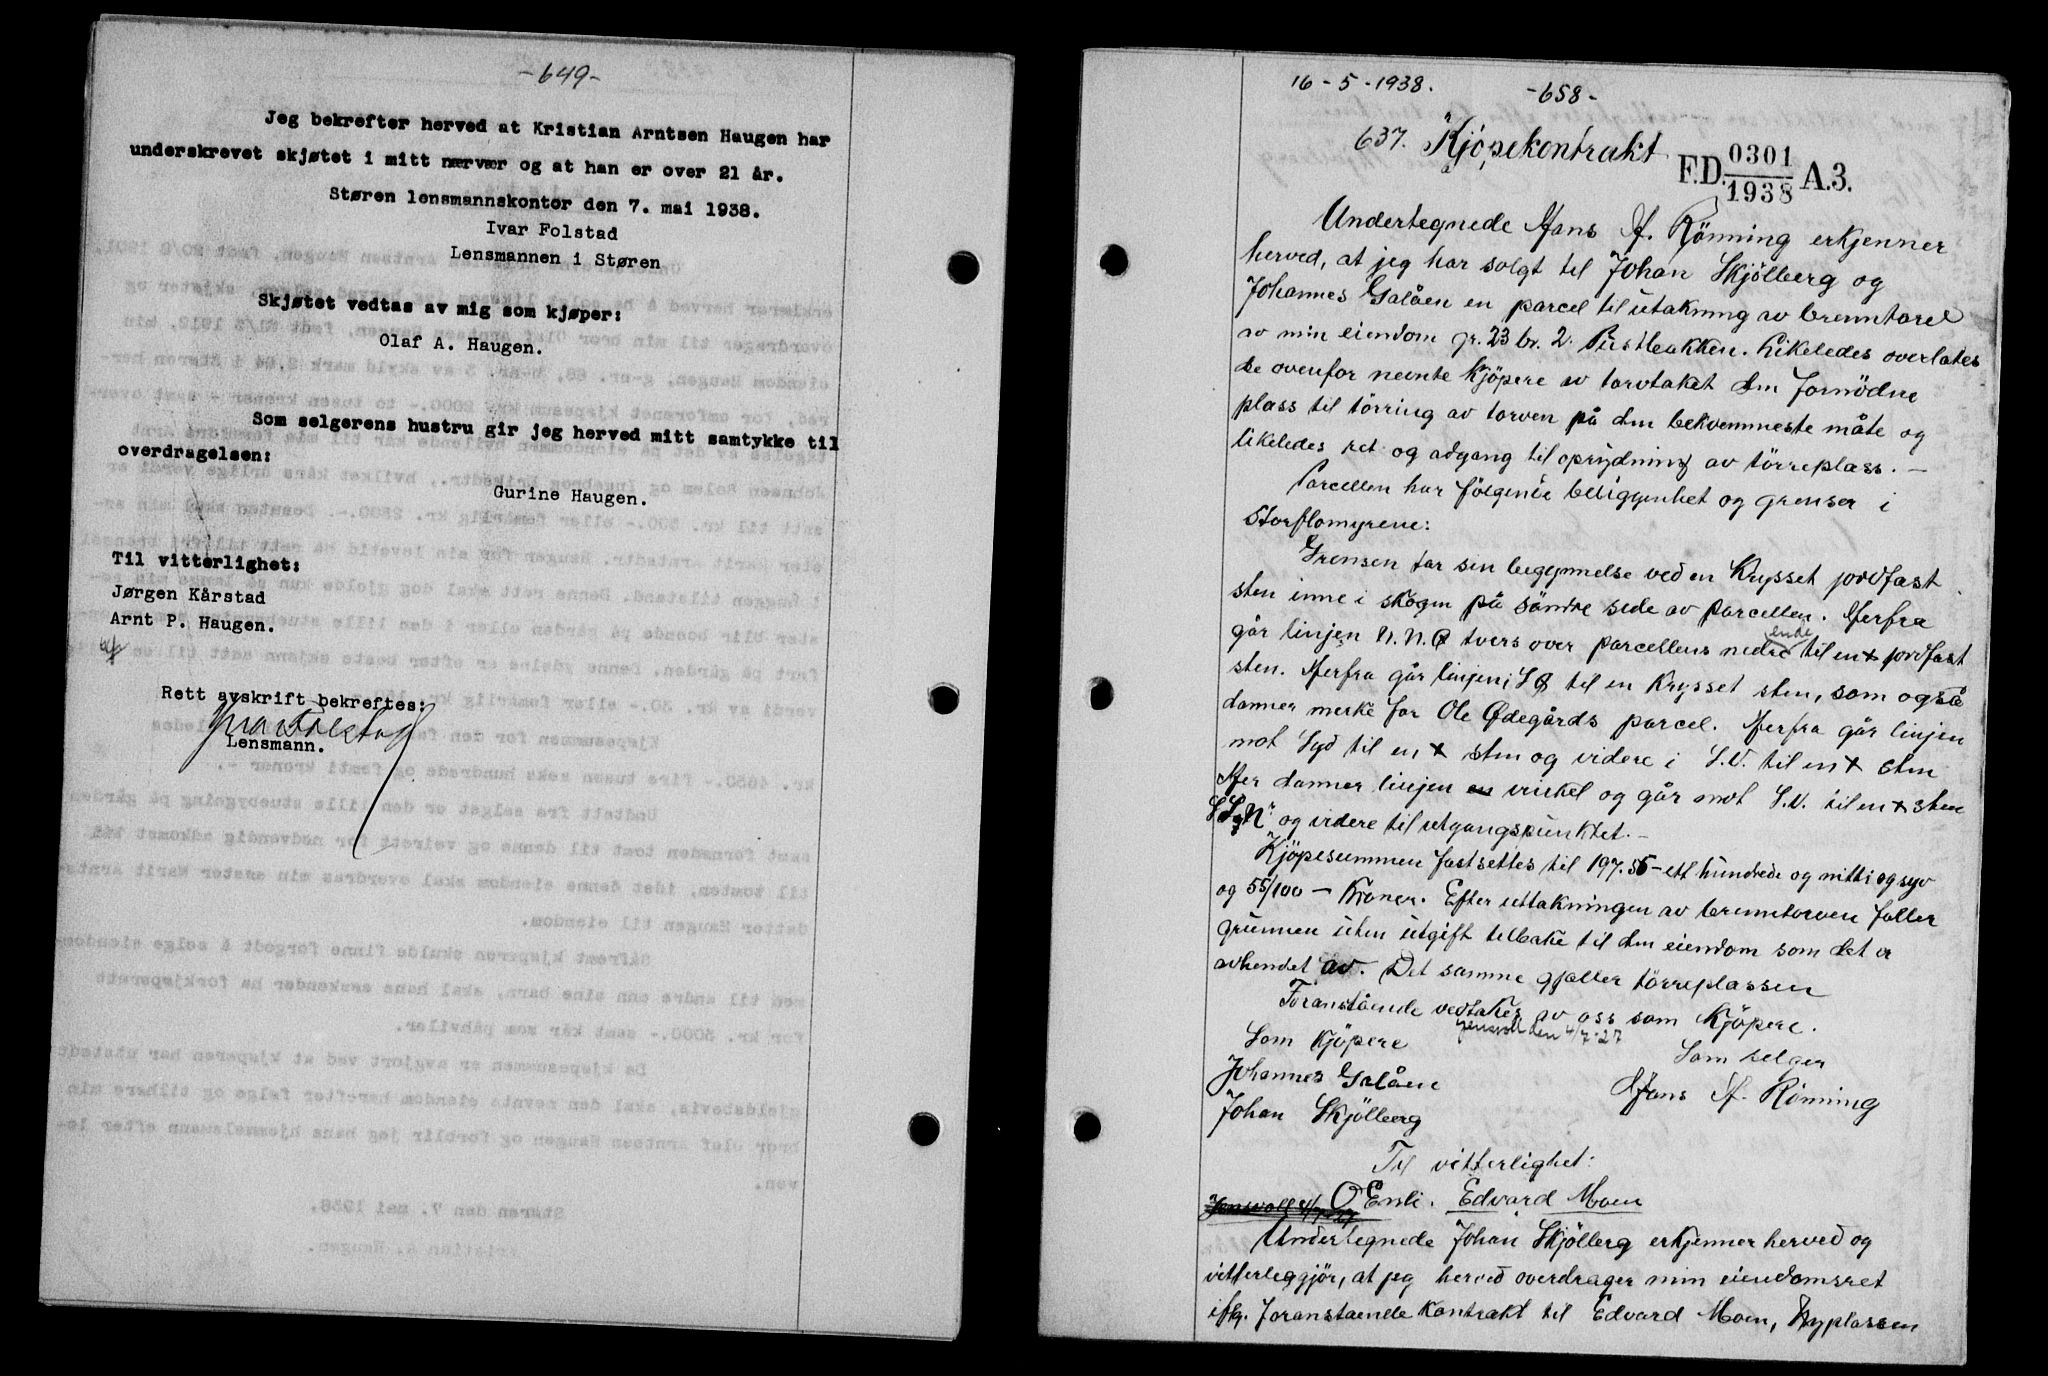 -649-
Jeg bekrefter herved at Kristian Arntsen Haugen har
underskrevet skjøtet i mitt nærvær og at han er over 21 år.
Støren lensmannskontor den 7. mai 1938.
Ivar Folstad
Lensmannen i Støren
Skjøtet vedtas av mig som kjøper:
Olaf A. Haugen.
Som selgerens hustru gir jeg herved mitt samtykke til
overdragelsen:
Gurine Haugen.
Til vitterlighet:
Jørgen Kårstad
Arnt P. Haugen.
Rett avskrift bekreftes:
Ivar Folstad
Lensmann.
16-5-1938.
-658-
637. Kjöpekontrakt
F.D. 0301/1938 A.3.
Undertegnede Hans H. Rönning erkjenner
herved, at jeg har solgt til Johan Skjölberg og
Johannes Galåen en parcel til utakning av brenntorv
av min eiendom gr. 23 br. 2. Pustbakken. Likeledes overlates
de ovenfor nevnte Kjöpere av torvtaket den fornödne
plass til törring av torven på den bekvemmeste måte og
likeledes ret og adgang til oprydning av törreplass. -
Parcellen har fölgende beliggenhet og grenser i
Storflomyrene:
Grensen tar sin begynnelse ved en Krysset jordfast
sten inne i skogen på söndre side av parcellen. Herfra
går linjen N.N.Ø tvers over parcellens nedre ende til en x jordfast
sten. Herfra går linjen i SØ til en Krysset sten, som også
danner merke for Ole Ødegårds parcel. Herfra går linjen
mot Syd til en x sten og videre i S.V. til en x sten
Her danner linjen en vinkel og går mot S.V. til en x sten
og videre til utgangspunktet. -
Kjöpesummen fastsettes til 197.55 - ett hundrede og nitti og syv
og 55/100 - Kroner. Efter uttakningen av brenntorven faller
grunnen uten utgift tilbake til den eiendom som det er
avhendet av. Det samme gjeller törreplassen
Foranstående vedtakes av oss som Kjöpere.
Jensvoll den 4/7-27
Som Kjöpere
Som selger
Johannes Galåen
Hans H. Rönning
Johan Skjölberg
Til vitterlighet:
Jensvoll 4/7-27
O Enli. Edvard Moen
Undertegnede Johan Skjölberg erkjenner herved og
vitterleggjör, at jeg herved overdrager min eiendomsret
iflg. foranstaende Kontrakt til Edvard Moen, Nyplassen